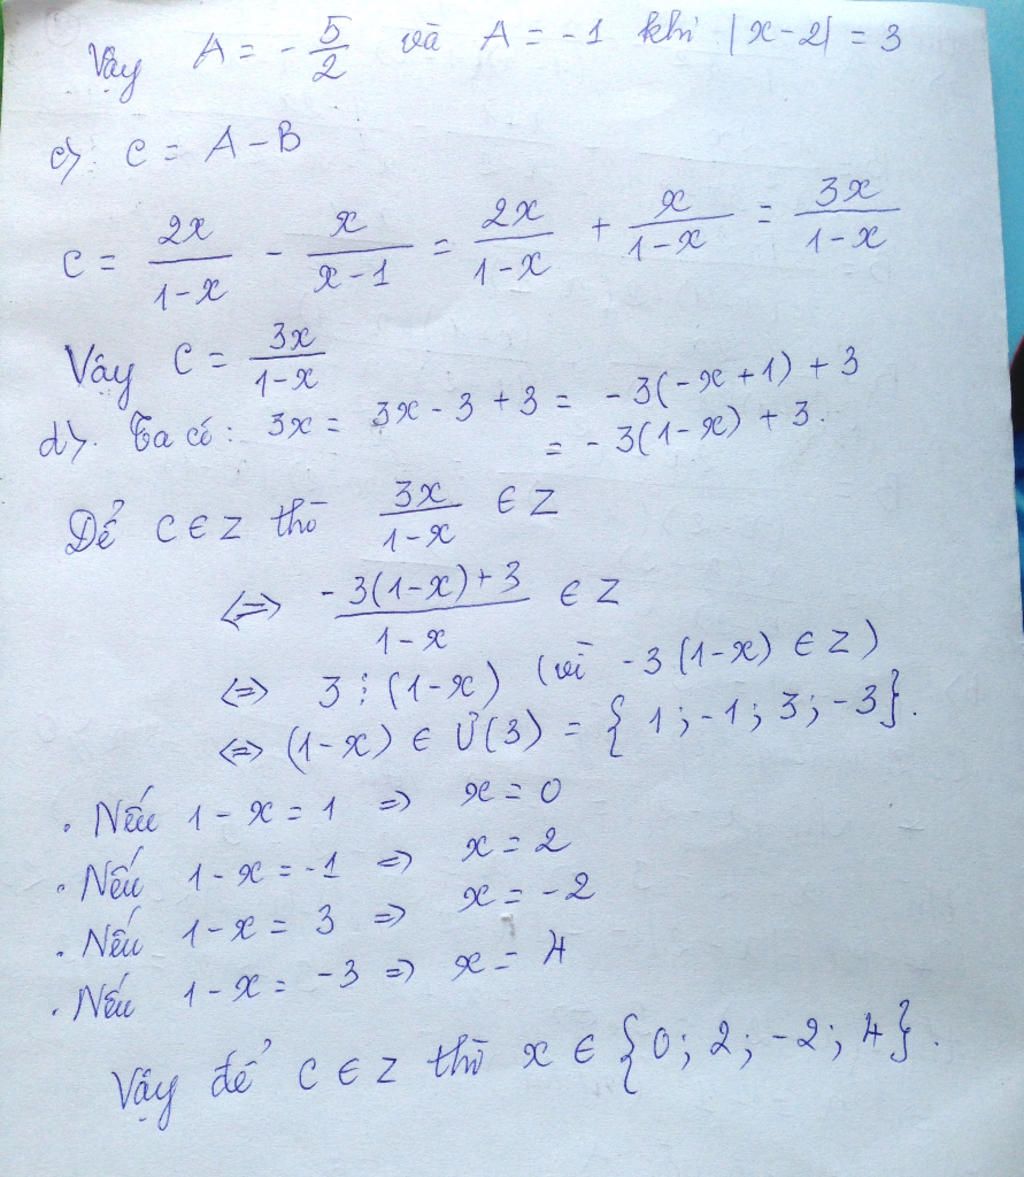 Vậy A = - 5/2 và A = -1 khi |x-2| = 3
c). C = A - B
C = 2x/(1-x) - x/(x-1) = 2x/(1-x) + x/(1-x) = 3x/(1-x)
Vậy C = 3x/(1-x)
d). Ta có: 3x = 3x - 3 + 3 = -3(-x+1) + 3
= -3(1-x) + 3.
Để C ∈ Z thì 3x/(1-x) ∈ Z
⇔ (-3(1-x)+3)/(1-x) ∈ Z
⇔ 3 ⋮ (1-x) (vì -3(1-x) ∈ Z)
⇔ (1-x) ∈ Ư(3) = {1; -1; 3; -3}.
. Nếu 1-x = 1 => x = 0
. Nếu 1-x = -1 => x = 2
. Nếu 1-x = 3 => x = -2
. Nếu 1-x = -3 => x = 4
Vậy để C ∈ Z thì x ∈ {0; 2; -2; 4}.